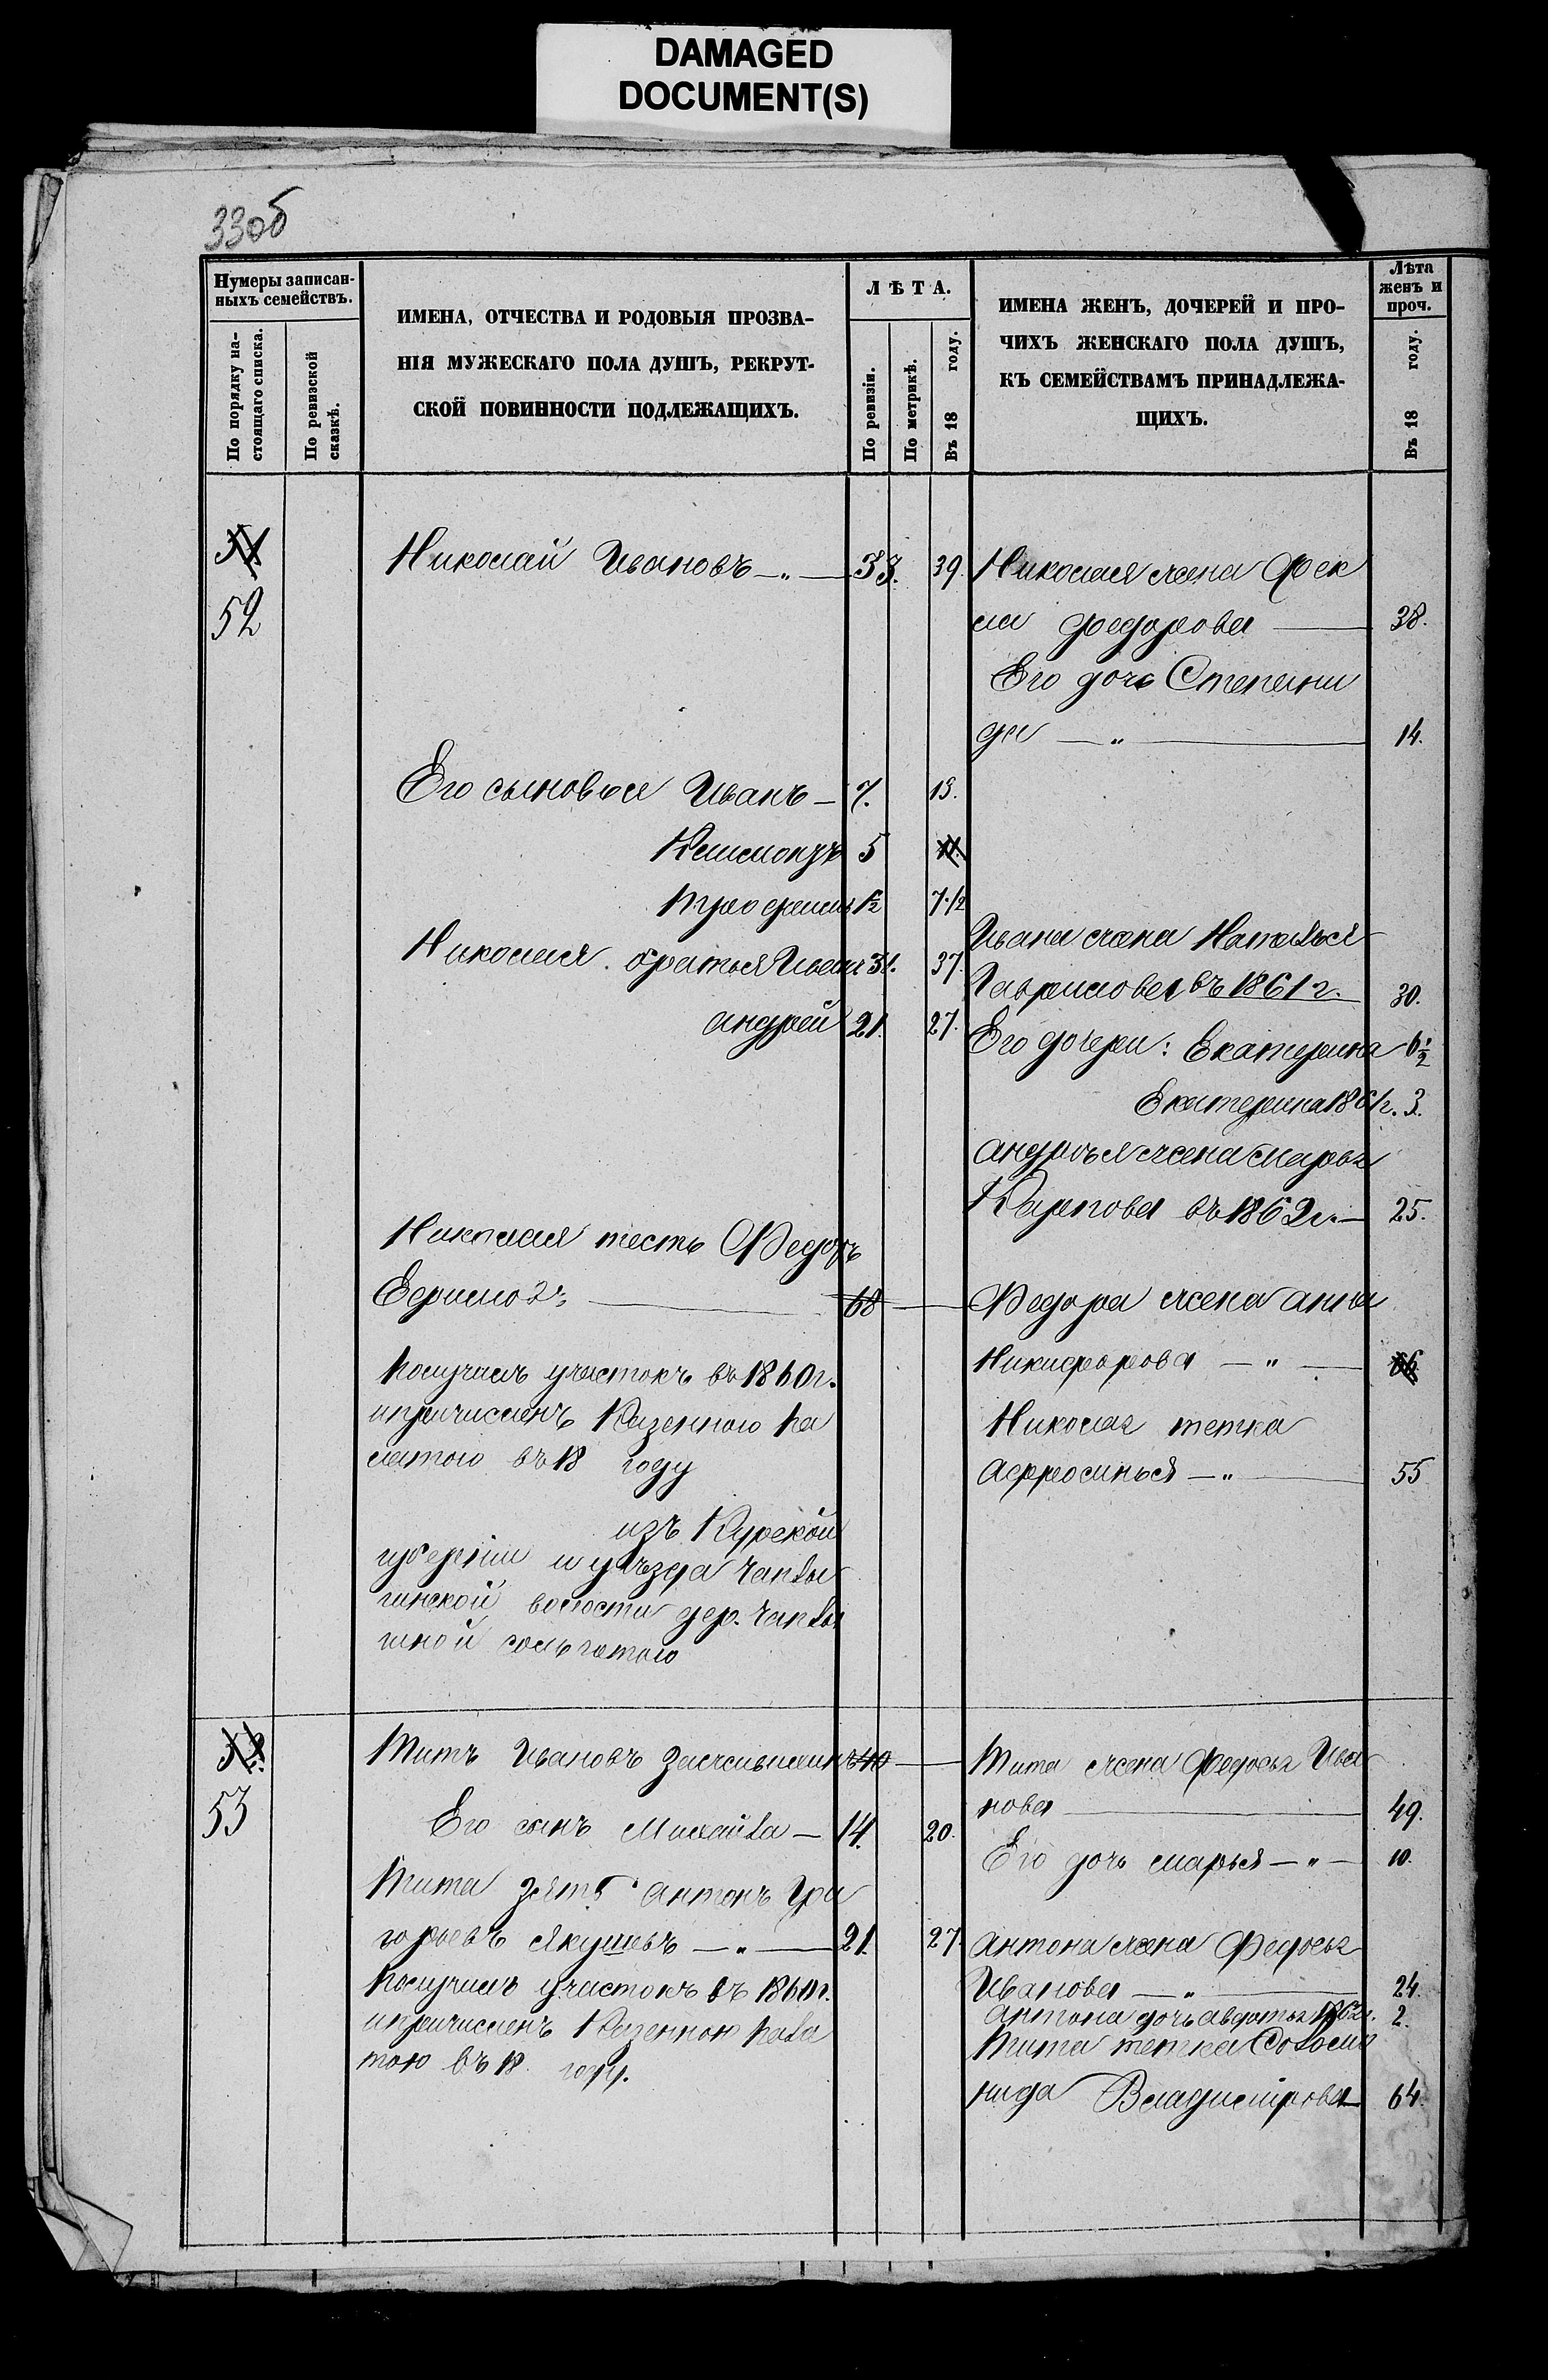 DAMAGED
DOCUMENT(S)
33об
Нумеры записан-
ныхъ семействъ.
По порядку на-
стоящаго списка.
По ревизской
сказкѣ.
ИМЕНА, ОТЧЕСТВА И РОДОВЫЯ ПРОЗВА-
НІЯ МУЖЕСКАГО ПОЛА ДУШЪ, РЕКРУТ-
СКОЙ ПОВИННОСТИ ПОДЛЕЖАЩИХЪ.
ЛѢТА.
По ревизіи.
По метрикѣ.
Въ 18 году.
ИМЕНА ЖЕНЪ, ДОЧЕРЕЙ И ПРО-
ЧИХЪ ЖЕНСКАГО ПОЛА ДУШЪ,
КЪ СЕМЕЙСТВАМЪ ПРИНАДЛЕЖА-
ЩИХЪ.
Лѣта
женъ и
проч.
Въ 18 году.
51
52
Николай Ивановъ — " — 33. 39.
Его сыновья Иванъ — 7. 13.
5 11.
Трофимъ 1½ 7½
Николая братья Иванъ 31. 37.
Андрей 21. 27.
Николая тесть Федоръ
Ефимовъ — 68 —
Получилъ участокъ въ 1860 г.
и причисленъ Казенною Па
латою въ 18 году
изъ Курской
губерніи и уѣзда Чаплы
гинской волости дер. Чаплы
гиной
Николая жена Фек
ла Федорова — 38.
Его дочь Степани
да — " — 14.
Ивана жена Наталья
Гаврилова въ 1861 г. 30.
Его дочери: Екатерина 6½
Екатерина 1861 г. 3.
Андрея жена Марья
Карпова въ 1862 г. — 25.
Федора жена Анна
Никифорова — " — 66
Николая тетка
Афросинья — " — 55
52
53
Титъ Ивановъ 40 —
Его сынъ Михайла — 14. 20.
Тита зять Антонъ Гри
горьевъ Якушевъ — " — 21. 27.
Получилъ участокъ въ 1860 г.
и причисленъ Казенною Пала
тою въ 18 году.
Тита жена Федосья Ива
нова — 49.
Его дочь Марья — " — 10.
Антона жена Федосья
Иванова — " — 24.
Антона дочь Авдотья 1862 г. 2.
Тита тетка Соломо
нида Владимірова — 64.